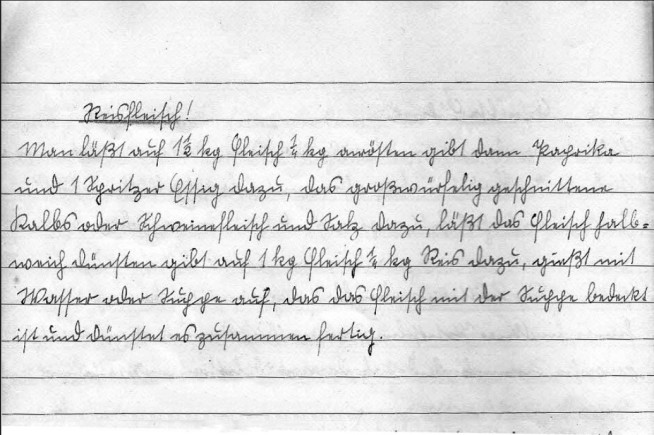 Reisfleisch!
Man läßt auf 1½ kg Fleisch ¼ kg anrösten gibt dann Paprika
und 1 Spritzer Essig dazu, das großwürfelig geschnittene
Kalbs oder Schweinefleisch und Salz dazu, läßt das Fleisch halb=
weich dünsten gibt auf 1 kg Fleisch ½ kg Reis dazu, gießt mit
Wasser oder Suppe auf, das das Fleisch mit der Suppe bedeckt
ist und dünstet es zusammen fertig.